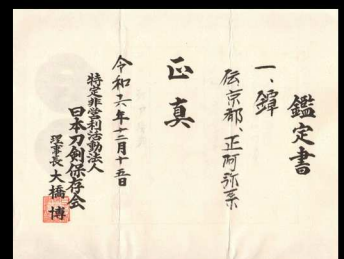 鑑定書
一、鐔
伝京都、正阿弥系
正真
令和六年十二月十五日
特定非営利活動法人
日本刀剣保存会
理事長 大橋 博